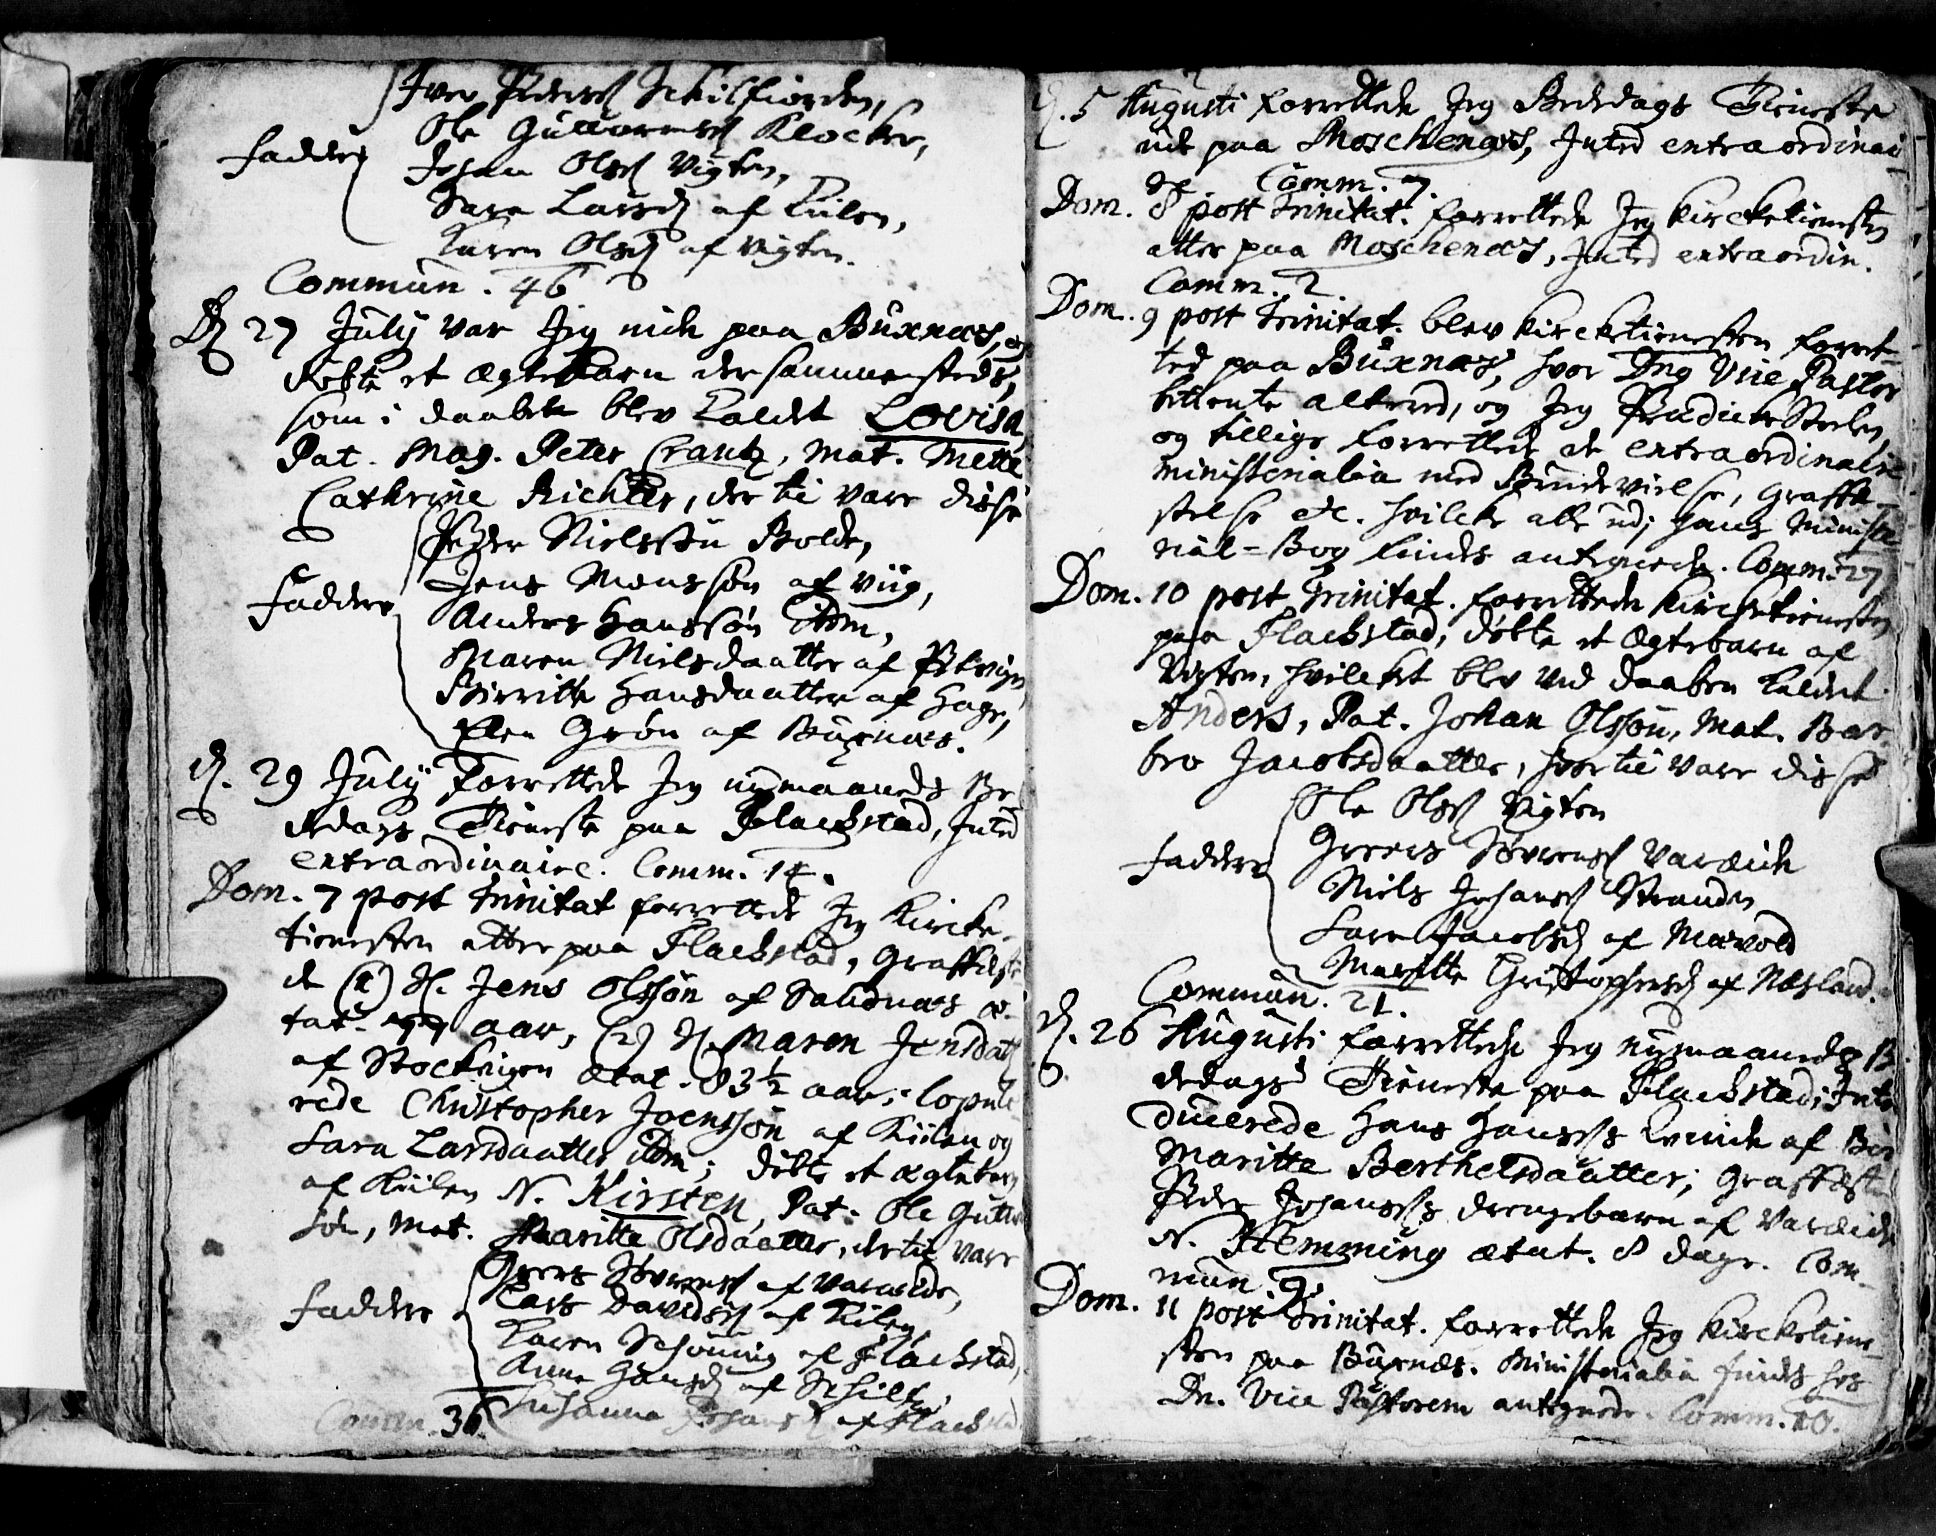 Iver Pedersß Schilfiorden,
Ole Gulluorsß Klocker,
Faddere
Johan Olsß Vigten,
Sara Larsd. af Kiilen,
Karen Olsd. af Vigten.
Commun. 46
D. 27 July var Jeg ude paa Buxnæs, og
døbte et ægtebarn der sammesteds,
som i daaben blev kaldet Lovisa,
Pat. Mag. Peter Crantz, Mat. Mette
Cathrine Richter, der til vare disse
Peder Nielssøn Bolde,
Jens Monssøn af Viig,
Faddere
Anders Hanssøn ibm,
Maren Nielsdaatter af Petvigen
Birritte Hansdaatter af Hage,
Elen Grøn af Buxnæs.
D. 29 July forrettede Jeg nymaaneds Be-
dedags Tieneste paa Flachstad, Inted
extraordinaire. Comm. 14.
Dom. 7 post Trinitat forrettede Jeg Kircke-
tienesten atter paa Flachstad, Graffæste-
de (1) Jens Olssøn af Sandnæs æ-
tat. aar, (2) Maren Jensdatt
af Stockvigen ætat. 83 1/2 aar; Copule-
rede Christopher Joenssøn af Kiilen og
Sara Larsdaatter ibm; døbte et ægtebarn
af Kiilen N. Kirsten, Pat. Ole Guttor
søn, Mat. Maritte Olsdaatter, der til vare
Greers Sørensß af Vareide,
Faddere
Lars Davidsß af Kiilen,
Karen Schøning af Flachstad,
Anne Hansd. af Schilf
Susanna Johansd. af Flachstad
Comm. 36.
D. 5 Augusti forrettede Jeg Bededags Tieneste
ude paa Moschenæs, Inted extraordinai-
re Comm. 7.
Dom. 8 post Trinitat. forrettede Jeg Kircketienesten
atter paa Moschenæs, Inted extraordin.
Comm. 2.
Dom. 9 post Trinitat. blev kircketienesten forret-
ted paa Buxnæs, hvor Dns Vice Pastor
betiente alteret, og Jeg Prædickestoelen,
og tillige forrettede de extraordinaire
ministerialia med Brudevielse, Graffæ-
stelse etc. hvilcke alle udj hans Ministe-
rial-Bog findes antegnede. Comm. 27
Dom. 10 post Trinitat. forrettede Kircketienesten
paa Flachstad, døbte et ægtebarn af
Vigten, hvilcket blev ved daaben kaldet
Anders, Pat. Johan Olssøn, Mat. Bar-
bro Jacobsdaatter, hvortil vare disse
Ole Olsß Vigten
Greers Sørensß Vareide
Faddere
Niels Johansß Stranden
Sara Jacobsd. af Mærvold
Maritte Christophersd. af Næsland.
Commun. 21.
D. 26 Augusti forrettede Jeg nymaaneds Be
dedags Tieneste paa Flachstad; Intro
ducerede Hans Hansens qvinde af
Maritte Berthelsdaatter; Graffæste
Peder Johansens drengebarn af Vareide
N. Flemming ætat. 8 dage. Com-
mun. 9.
Dom. 11 post Trinitat. forrettede Jeg Kircketiene-
sten paa Buxnæs. Ministerialia findes hos
Dn. Vice Pastorem antegnede. Comm. 10.